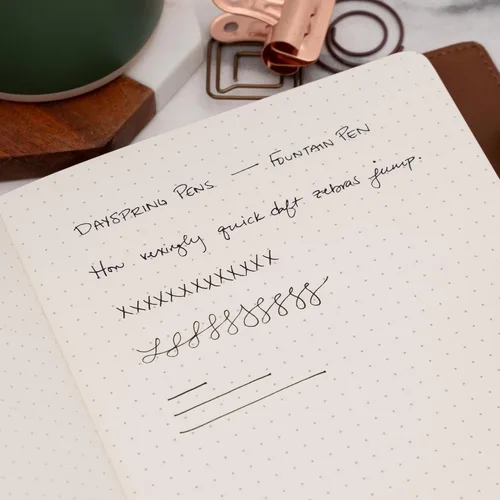 DAYSPRING PENS — FOUNTAIN PEN
How vexingly quick daft zebras jump.
XXXXXXXXXXXXX